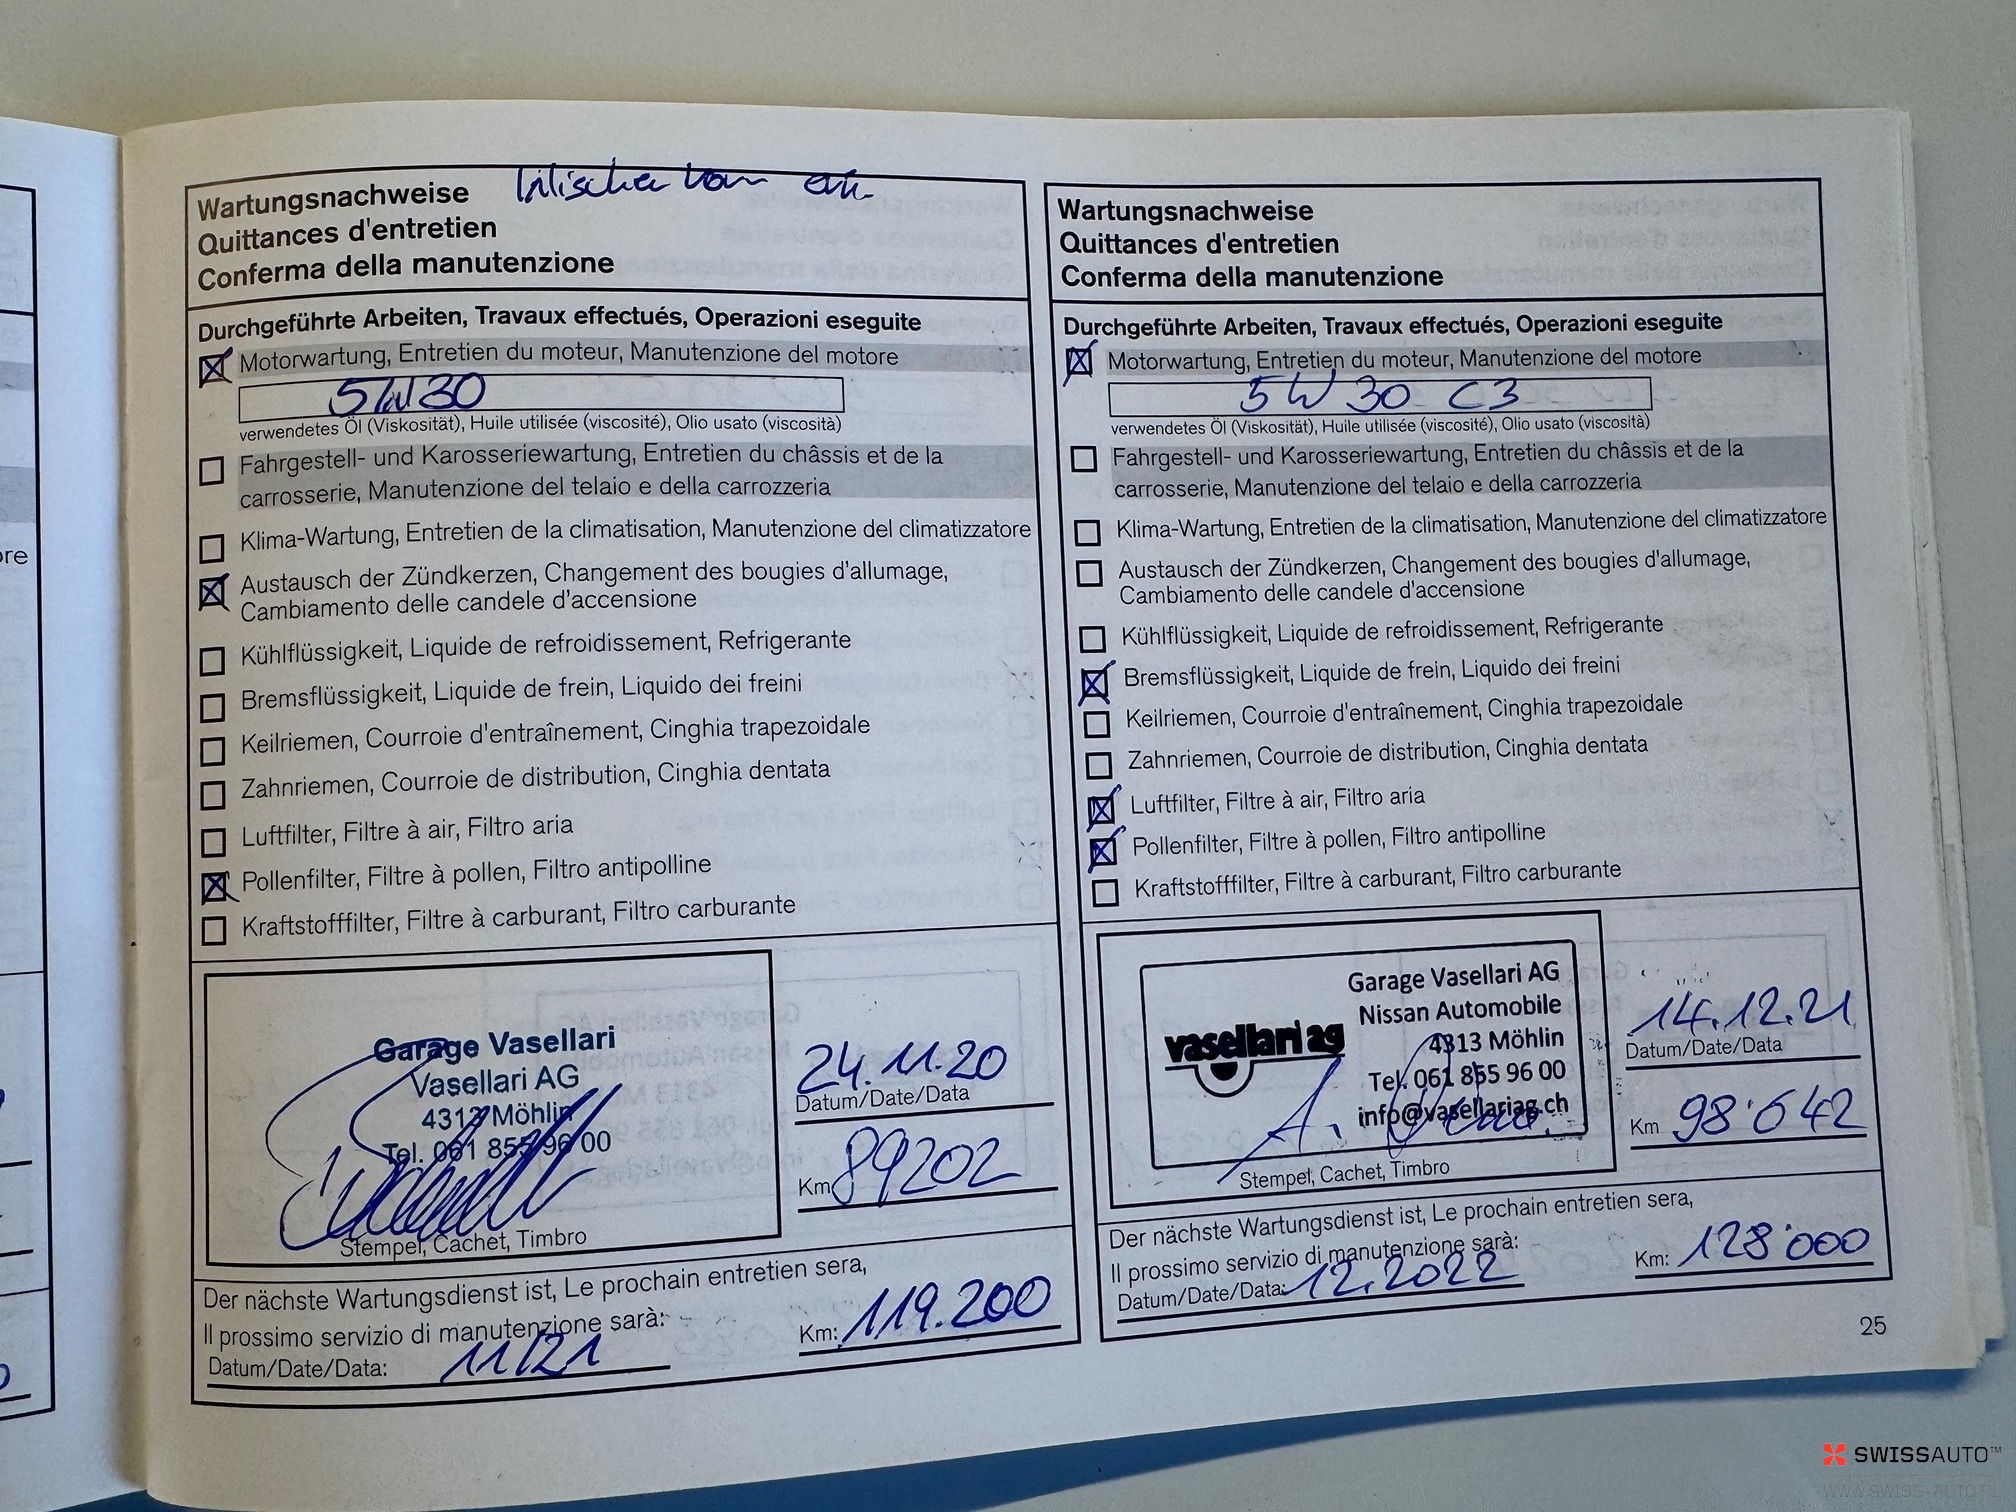 Wartungsnachweise
Quittances d'entretien
Conferma della manutenzione
Durchgeführte Arbeiten, Travaux effectués, Operazioni eseguite
Motorwartung, Entretien du moteur, Manutenzione del motore
5W30
verwendetes Öl (Viskosität), Huile utilisée (viscosité), Olio usato (viscosità)
Fahrgestell- und Karosseriewartung, Entretien du châssis et de la
carrosserie, Manutenzione del telaio e della carrozzeria
Klima-Wartung, Entretien de la climatisation, Manutenzione del climatizzatore
Austausch der Zündkerzen, Changement des bougies d'allumage,
Cambiamento delle candele d'accensione
Kühlflüssigkeit, Liquide de refroidissement, Refrigerante
Bremsflüssigkeit, Liquide de frein, Liquido dei freini
Keilriemen, Courroie d'entraînement, Cinghia trapezoidale
Zahnriemen, Courroie de distribution, Cinghia dentata
Luftfilter, Filtre à air, Filtro aria
Pollenfilter, Filtre à pollen, Filtro antipolline
Kraftstofffilter, Filtre à carburant, Filtro carburante
Garage Vasellari
Vasellari AG
4313 Möhlin
Tel. 061 855 96 00
Stempel, Cachet, Timbro
24.11.20
Datum/Date/Data
Km 89202
Der nächste Wartungsdienst ist, Le prochain entretien sera,
Il prossimo servizio di manutenzione sarà:
Datum/Date/Data: 11/21
Km: 119.200
Wartungsnachweise
Quittances d'entretien
Conferma della manutenzione
Durchgeführte Arbeiten, Travaux effectués, Operazioni eseguite
Motorwartung, Entretien du moteur, Manutenzione del motore
5W30 C3
verwendetes Öl (Viskosität), Huile utilisée (viscosité), Olio usato (viscosità)
Fahrgestell- und Karosseriewartung, Entretien du châssis et de la
carrosserie, Manutenzione del telaio e della carrozzeria
Klima-Wartung, Entretien de la climatisation, Manutenzione del climatizzatore
Austausch der Zündkerzen, Changement des bougies d'allumage,
Cambiamento delle candele d'accensione
Kühlflüssigkeit, Liquide de refroidissement, Refrigerante
Bremsflüssigkeit, Liquide de frein, Liquido dei freini
Keilriemen, Courroie d'entraînement, Cinghia trapezoidale
Zahnriemen, Courroie de distribution, Cinghia dentata
Luftfilter, Filtre à air, Filtro aria
Pollenfilter, Filtre à pollen, Filtro antipolline
Kraftstofffilter, Filtre à carburant, Filtro carburante
vasellari ag
Garage Vasellari AG
Nissan Automobile
4313 Möhlin
Tel. 061 855 96 00
info@vasellariag.ch
Stempel, Cachet, Timbro
14.12.21
Datum/Date/Data
Km 98'642
Der nächste Wartungsdienst ist, Le prochain entretien sera,
Il prossimo servizio di manutenzione sarà:
Datum/Date/Data: 12.2022
Km: 128'000
25
SWISSAUTO™